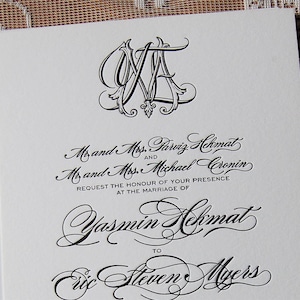 Mr. and Mrs. Parviz Hekmat
AND
Mr. and Mrs. Michael Cronin
REQUEST THE HONOUR OF YOUR PRESENCE
AT THE MARRIAGE OF
Yasmin Hekmat
TO
Eric Steven Myers